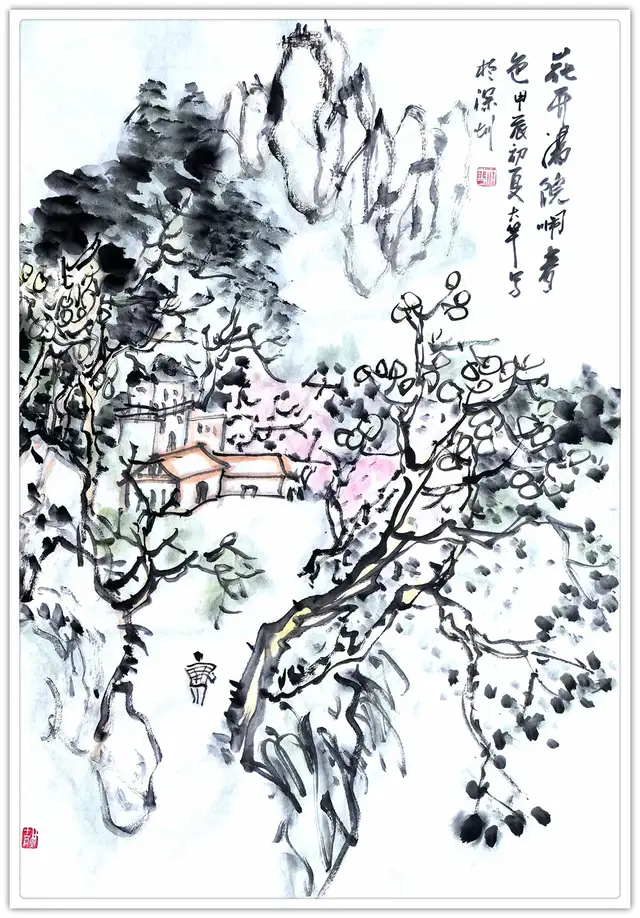 花开满院闹春
色甲辰初夏大写
於深圳